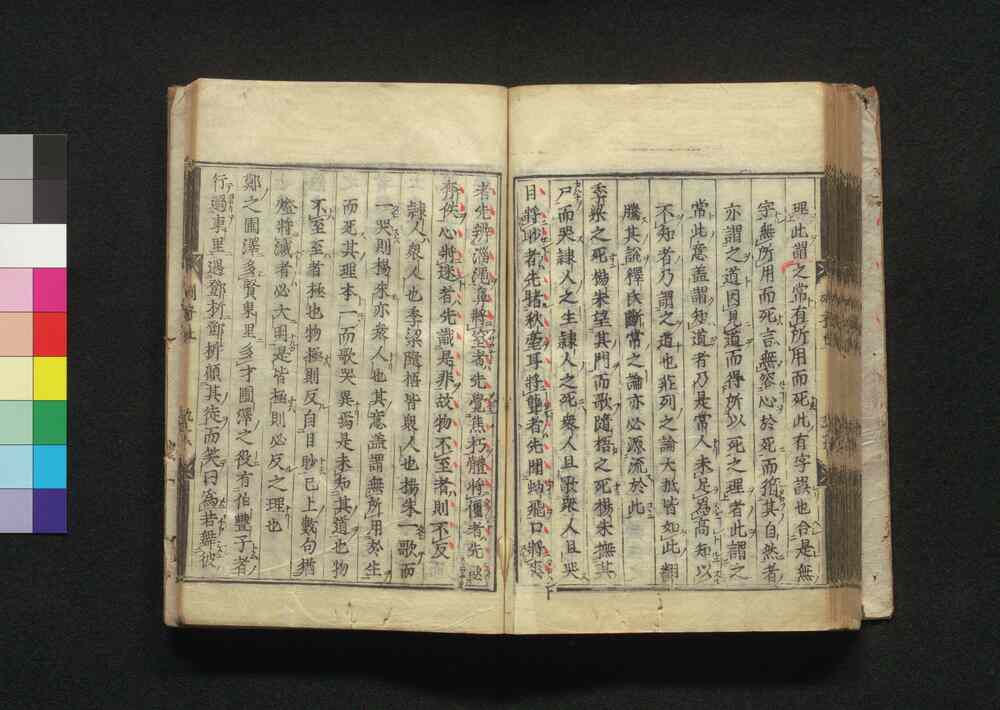 理此謂之常有所用而死此有字誤也合是無
字無所用而死言無容心於死而循其自然者
亦謂之道因見道而得所以死之理者此謂之
常此意盖謂知道者乃是常人未足爲高知以
不知者乃謂之道也莊列之論大抵皆如此翻
騰其說釋氏斷常之論亦必源流於此
季梁之死楊朱望其門而歌隨梧之死楊朱撫其
尸而哭隷人之生隷人之死衆人且歌衆人且哭
目將眇者先睹秋毫耳將聾者先聞蚋飛口將爽
者先辨淄澠鼻將窒者先覺焦朽體將僵者先亟
奔佚心將迷者先識是非故物不至者則不反
隷人衆人也季梁隨梧皆衆人也楊朱一歌而
一哭則楊朱亦衆人也其意盖謂無所用於生
而死其理本一而歌哭異焉是未知其道也物
不至至者極也物極則反自目眇已上數句猶
燈將滅者必大明是皆極則必反之理也
鄭之圃澤多賢東里多才圃澤之役有伯豐子者
行過東里遇鄧析鄧析顧其徒而笑曰爲若舞彼